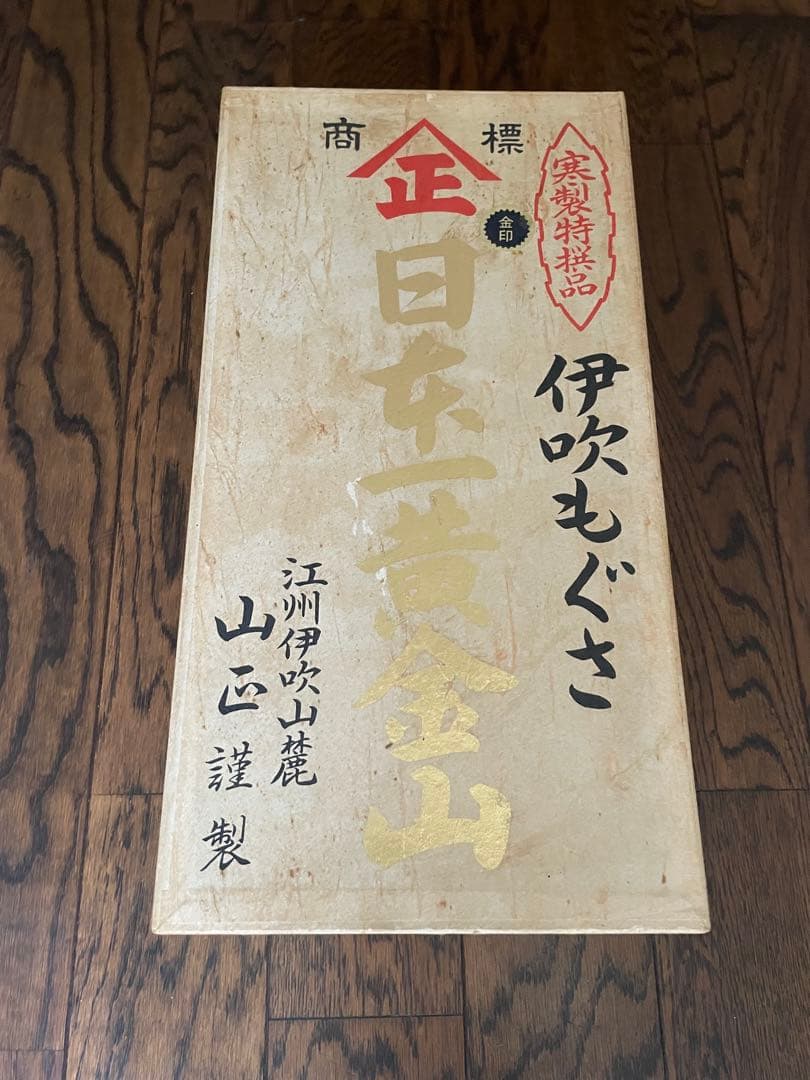 商標
正
金印
寒製特撰品
伊吹もぐさ
日本一黄金山
江州伊吹山麓
山正謹製